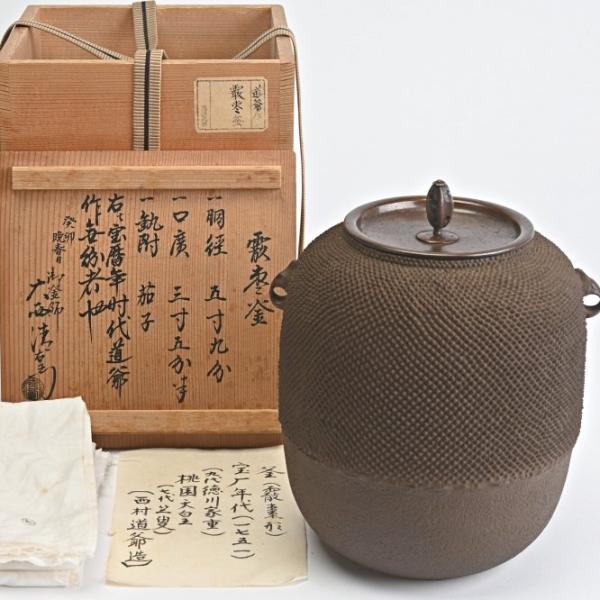 霰棗釜
霰棗釜
一胴径 五寸九分
一口廣 三寸五分半
一釻附 茄子
右ハ宝暦年時代道爺
作無紛者也
癸卯
晩春日
御釜師
大西清右衛門
釜(霰棗形)
宝厂年代(一七五一)
(九代徳川家重)
桃園天皇
(七代之叟)
(西村道爺造)